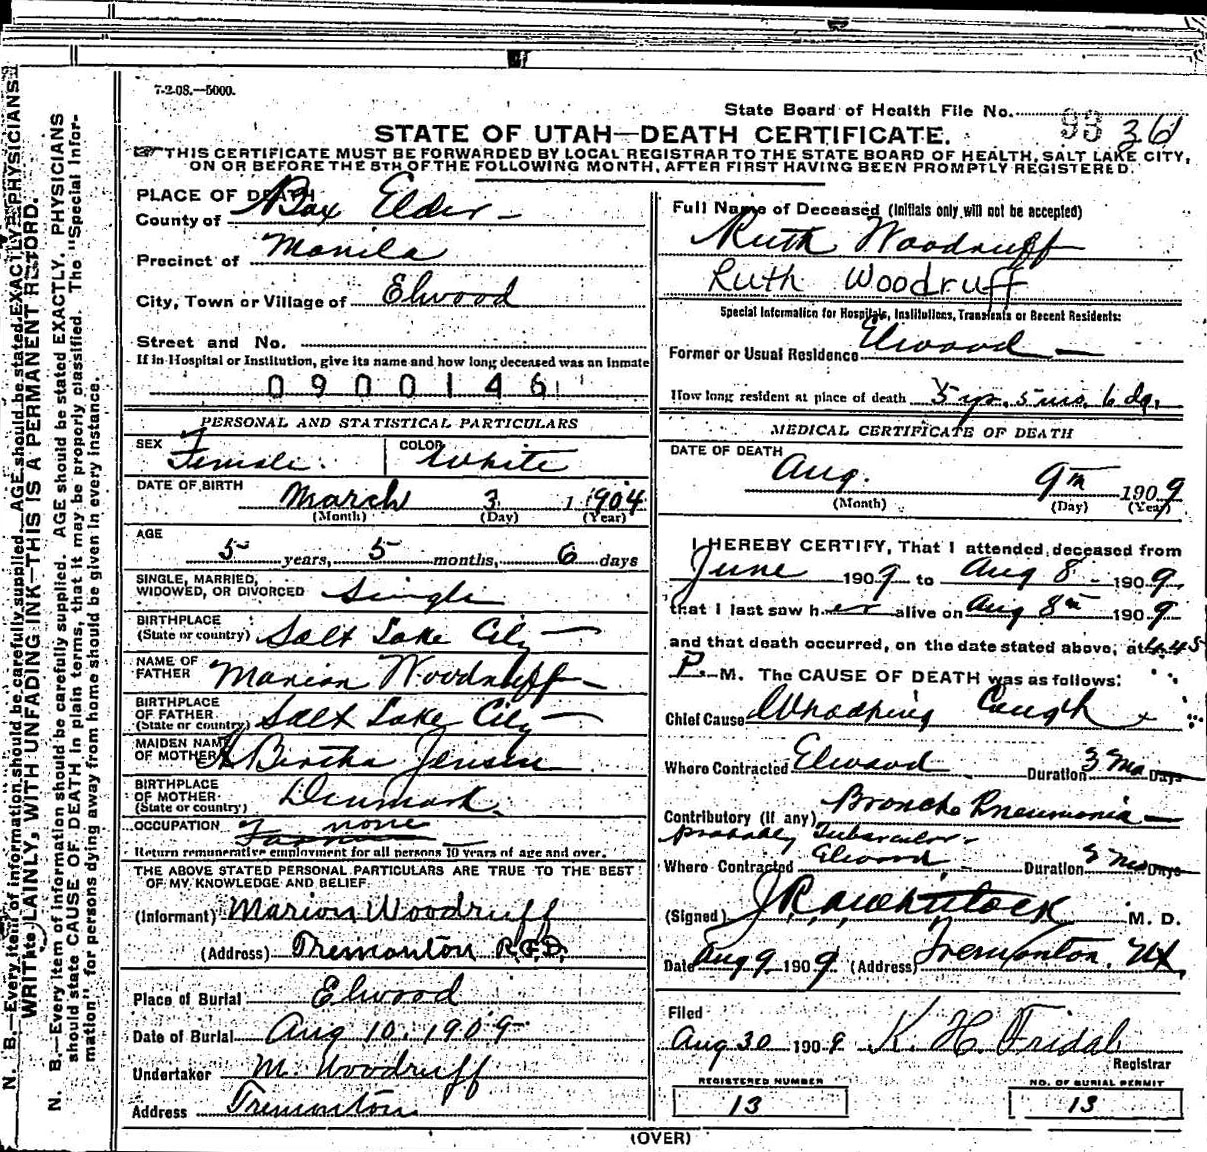 7-2-08.—5000.
State Board of Health File No. 93 36
STATE OF UTAH—DEATH CERTIFICATE.
THIS CERTIFICATE MUST BE FORWARDED BY LOCAL REGISTRAR TO THE STATE BOARD OF HEALTH, SALT LAKE CITY,
ON OR BEFORE THE 5TH OF THE FOLLOWING MONTH, AFTER FIRST HAVING BEEN PROMPTLY REGISTERED.
N. B.—Every item of information should be carefully supplied. AGE should be stated EXACTLY. PHYSICIANS
WRITE PLAINLY, WITH UNFADING INK—THIS IS A PERMANENT RECORD.
N. B.—Every item of information should be carefully supplied. AGE should be stated EXACTLY. PHYSICIANS
should state CAUSE OF DEATH in plain terms, that it may be properly classified. The "Special Infor-
mation" for persons dying away from home should be given in every instance.
PLACE OF DEATH
County of Box Elder
Precinct of Manila
City, Town or Village of Elwood
Street and No.
If in Hospital or Institution, give its name and how long deceased was an inmate
0900146
PERSONAL AND STATISTICAL PARTICULARS
SEX Female. COLOR White
DATE OF BIRTH March 3 1 1904
(Month) (Day) (Year)
AGE
5 years, 5 months, 6 days
SINGLE, MARRIED,
WIDOWED, OR DIVORCED Single
BIRTHPLACE
(State or country) Salt Lake City
NAME OF
FATHER Marion Woodruff
BIRTHPLACE
OF FATHER
(State or country) Salt Lake City
MAIDEN NAME
OF MOTHER Bertha Jensen
BIRTHPLACE
OF MOTHER
(State or country) Denmark
OCCUPATION none
Return remunerative employment for all persons 10 years of age and over.
THE ABOVE STATED PERSONAL PARTICULARS ARE TRUE TO THE BEST
OF MY KNOWLEDGE AND BELIEF.
(Informant) Marion Woodruff
(Address) Tremonton R.F.D.
Place of Burial Elwood
Date of Burial Aug 10, 1909
Undertaker M. Woodruff
Address Tremonton
Full Name of Deceased (Initials only will not be accepted)
Ruth Woodruff
Ruth Woodruff
Special Information for Hospitals, Institutions, Transients or Recent Residents:
Former or Usual Residence Elwood
How long resident at place of death 5 yr. 5 mo. 6 da.
MEDICAL CERTIFICATE OF DEATH
DATE OF DEATH
Aug. 9th 1909
(Month) (Day) (Year)
I HEREBY CERTIFY, That I attended deceased from
June 1909 to Aug 8 1909,
that I last saw her alive on Aug 8th 1909
and that death occurred, on the date stated above, at 4.45
P. M. The CAUSE OF DEATH was as follows:
Chief Cause Whooping Cough
Where Contracted Elwood Duration 3 Mo Days
Contributory (if any) Broncho Pneumonia
probably Tubercular
Where Contracted Elwood Duration Mo Days
(Signed) M. D.
Date Aug 9 1909 (Address) Tremonton, Ut.
Filed
Aug 30 1909 K. H. Fridal
Registrar
REGISTERED NUMBER
13
NO. OF BURIAL PERMIT
13
(OVER)